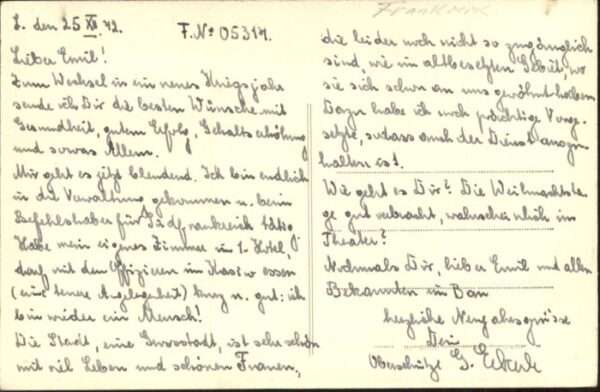 L. den 25 XII. 42.
F. № 05317.
Frankreich
Lieber Emil!
Zum Wechsel in ein neues Kriegsjahr
sende ich Dir die besten Wünsche mit
Gesundheit, gutem Erfolg, Gehaltserhöhung
und sowas Allem.
Mir geht es jetzt blendend. Ich bin endlich
in die Verwaltung gekommen u. beim
Befehlshaber für Südfrankreich tätig
Habe mein eigenes Zimmer im 1. Hotel,
darf mit den Offizieren im Kasino essen
(eine teuere Angelegenheit) kurz u. gut: ich
bin wieder ein Mensch!
Die Stadt, eine Grosstadt, ist sehr schön
mit viel Leben und schönen Frauen,
die leider noch nicht so zugänglich
sind, wie im altbesetzten Gebiet, wo
sie sich schon an uns gewöhnt haben
Dazu habe ich noch prächtige Vorge-
setzte, sodass auch der Dienst auszu-
halten ist.
Wie geht es Dir? Die Weihnachtsta-
ge gut verbracht, wahrscheinlich im
Theater?
Nochmals Dir, lieber Emil und allen
Bekannten im Bau
herzliche Neujahrsgrüsse
Dein
Oberschütze G. Eckerle